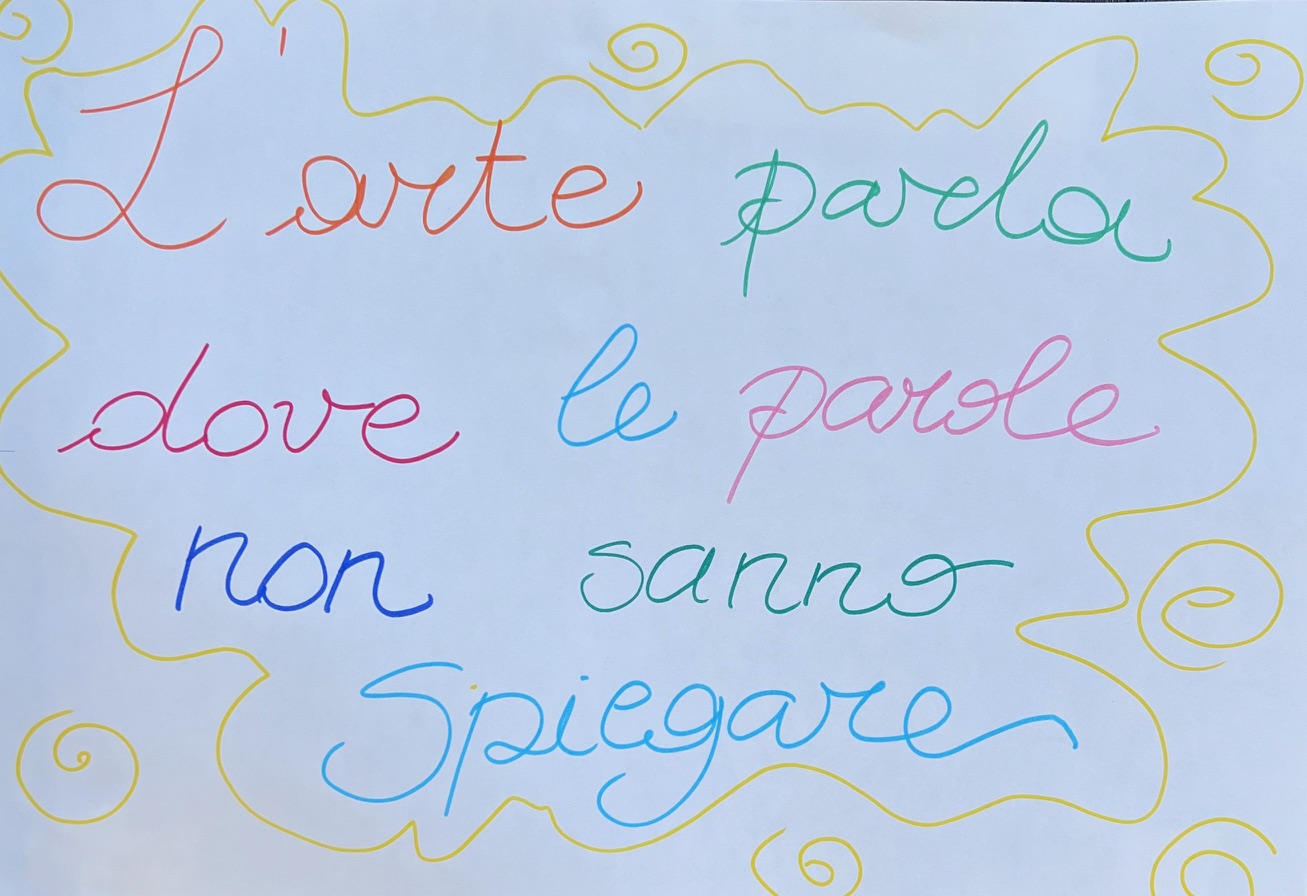 L'arte parla
dove le parole
non sanno
Spiegare